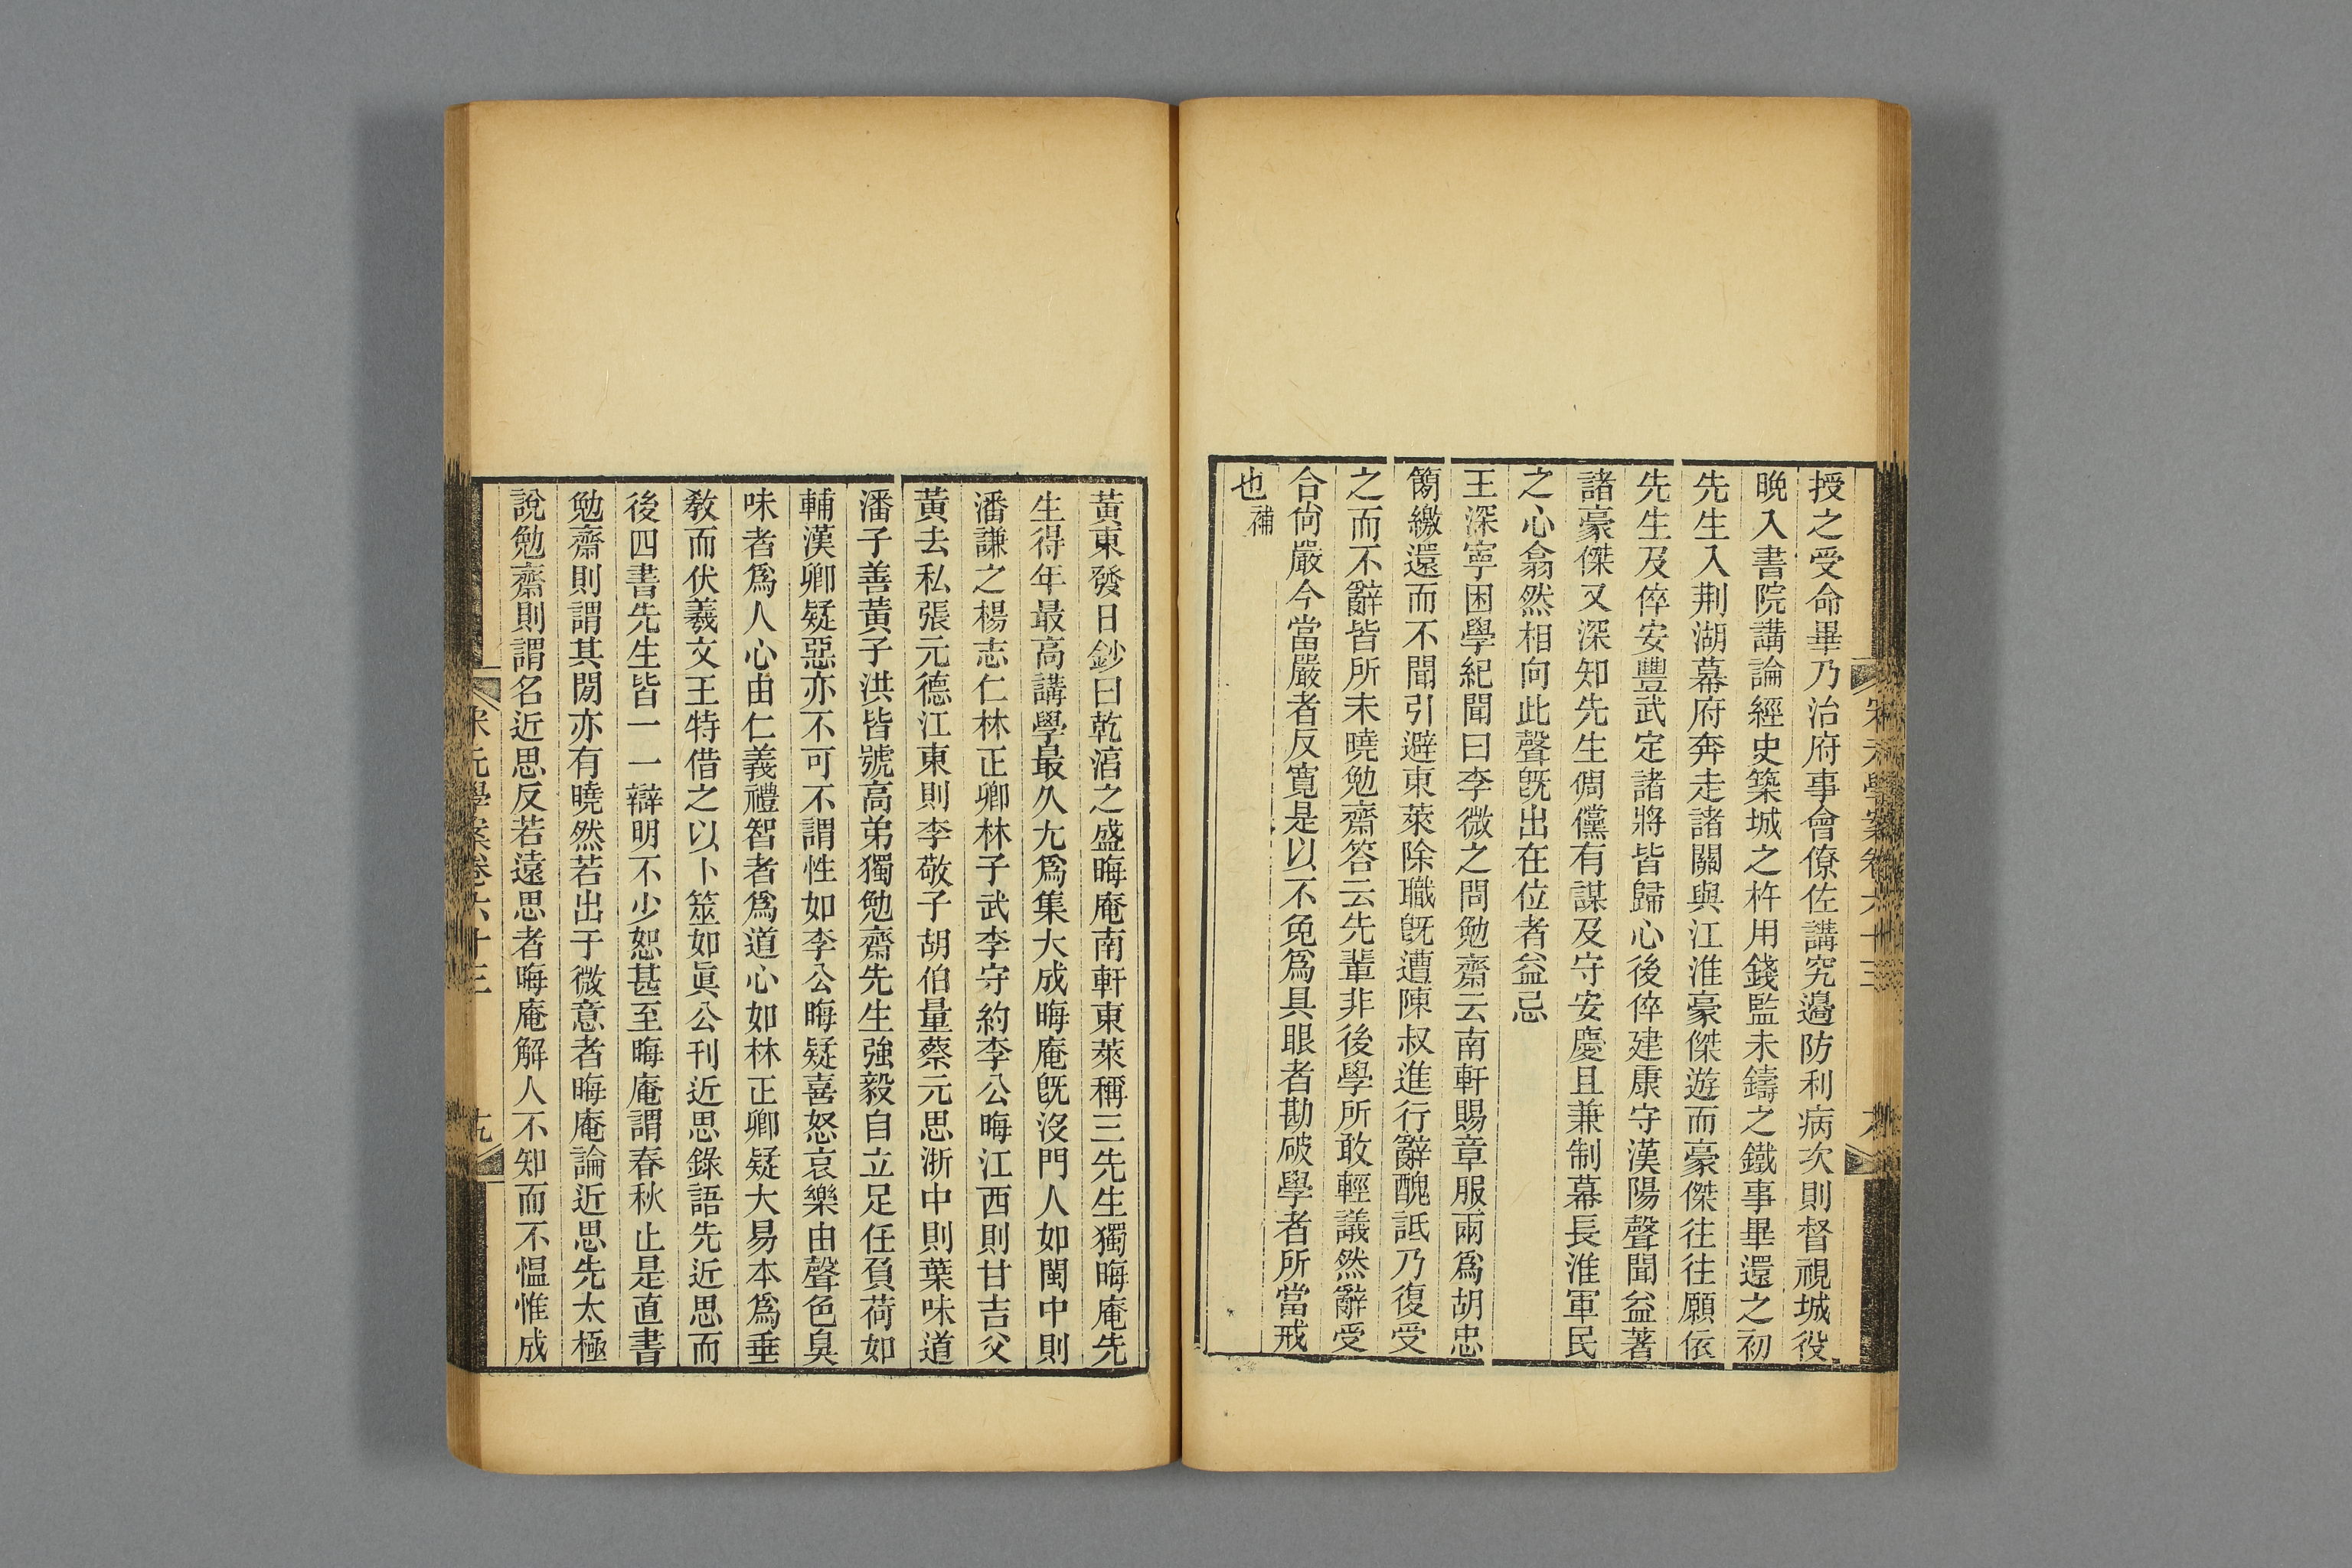 授之受命畢乃治府事會僚佐講究邉防利病次則督視城役
晚入書院講論經史築城之杵用錢監未鑄之鐵事畢還之初
先生入荆湖幕府奔走諸關與江淮豪傑遊而豪傑往往願依
先生及倅安豐武定諸將皆歸心後倅建康守漢陽聲聞益著
諸豪傑又深知先生倜儻有謀及守安慶且兼制幕長淮軍民
之心翕然相向此聲旣出在位者益忌
王深寧困學紀聞曰李微之問勉齋云南軒賜章服兩爲胡忠
簡繳還而不聞引避東萊除職旣遭陳叔進行辭醜詆乃復受
之而不辭皆所未曉勉齋答云先輩非後學所敢輕議然辭受
合尙嚴今當嚴者反寬是以不免爲具眼者勘破學者所當戒
也補
宋元學案卷六十三
黃東發日鈔曰乾淳之盛晦庵南軒東萊稱三先生獨晦庵先
生得年最高講學最久尢爲集大成晦庵旣沒門人如閩中則
潘謙之楊志仁林正卿林子武李守約李公晦江西則甘吉父
黃去私張元德江東則李敬子胡伯量蔡元思浙中則葉味道
潘子善黃子洪皆號高弟獨勉齋先生強毅自立足任負荷如
輔漢卿疑惡亦不可不謂性如李公晦疑喜怒哀樂由聲色臭
味者爲人心由仁義禮智者爲道心如林正卿疑大易本爲垂
敎而伏羲文王特借之以卜筮如眞公刊近思錄語先近思而
後四書先生皆一一辯明不少恕甚至晦庵謂春秋止是直書
勉齋則謂其閒亦有曉然若出于微意者晦庵論近思先太極
說勉齋則謂名近思反若遠思者晦庵解人不知而不慍惟成
宋元學案卷六十三
十九